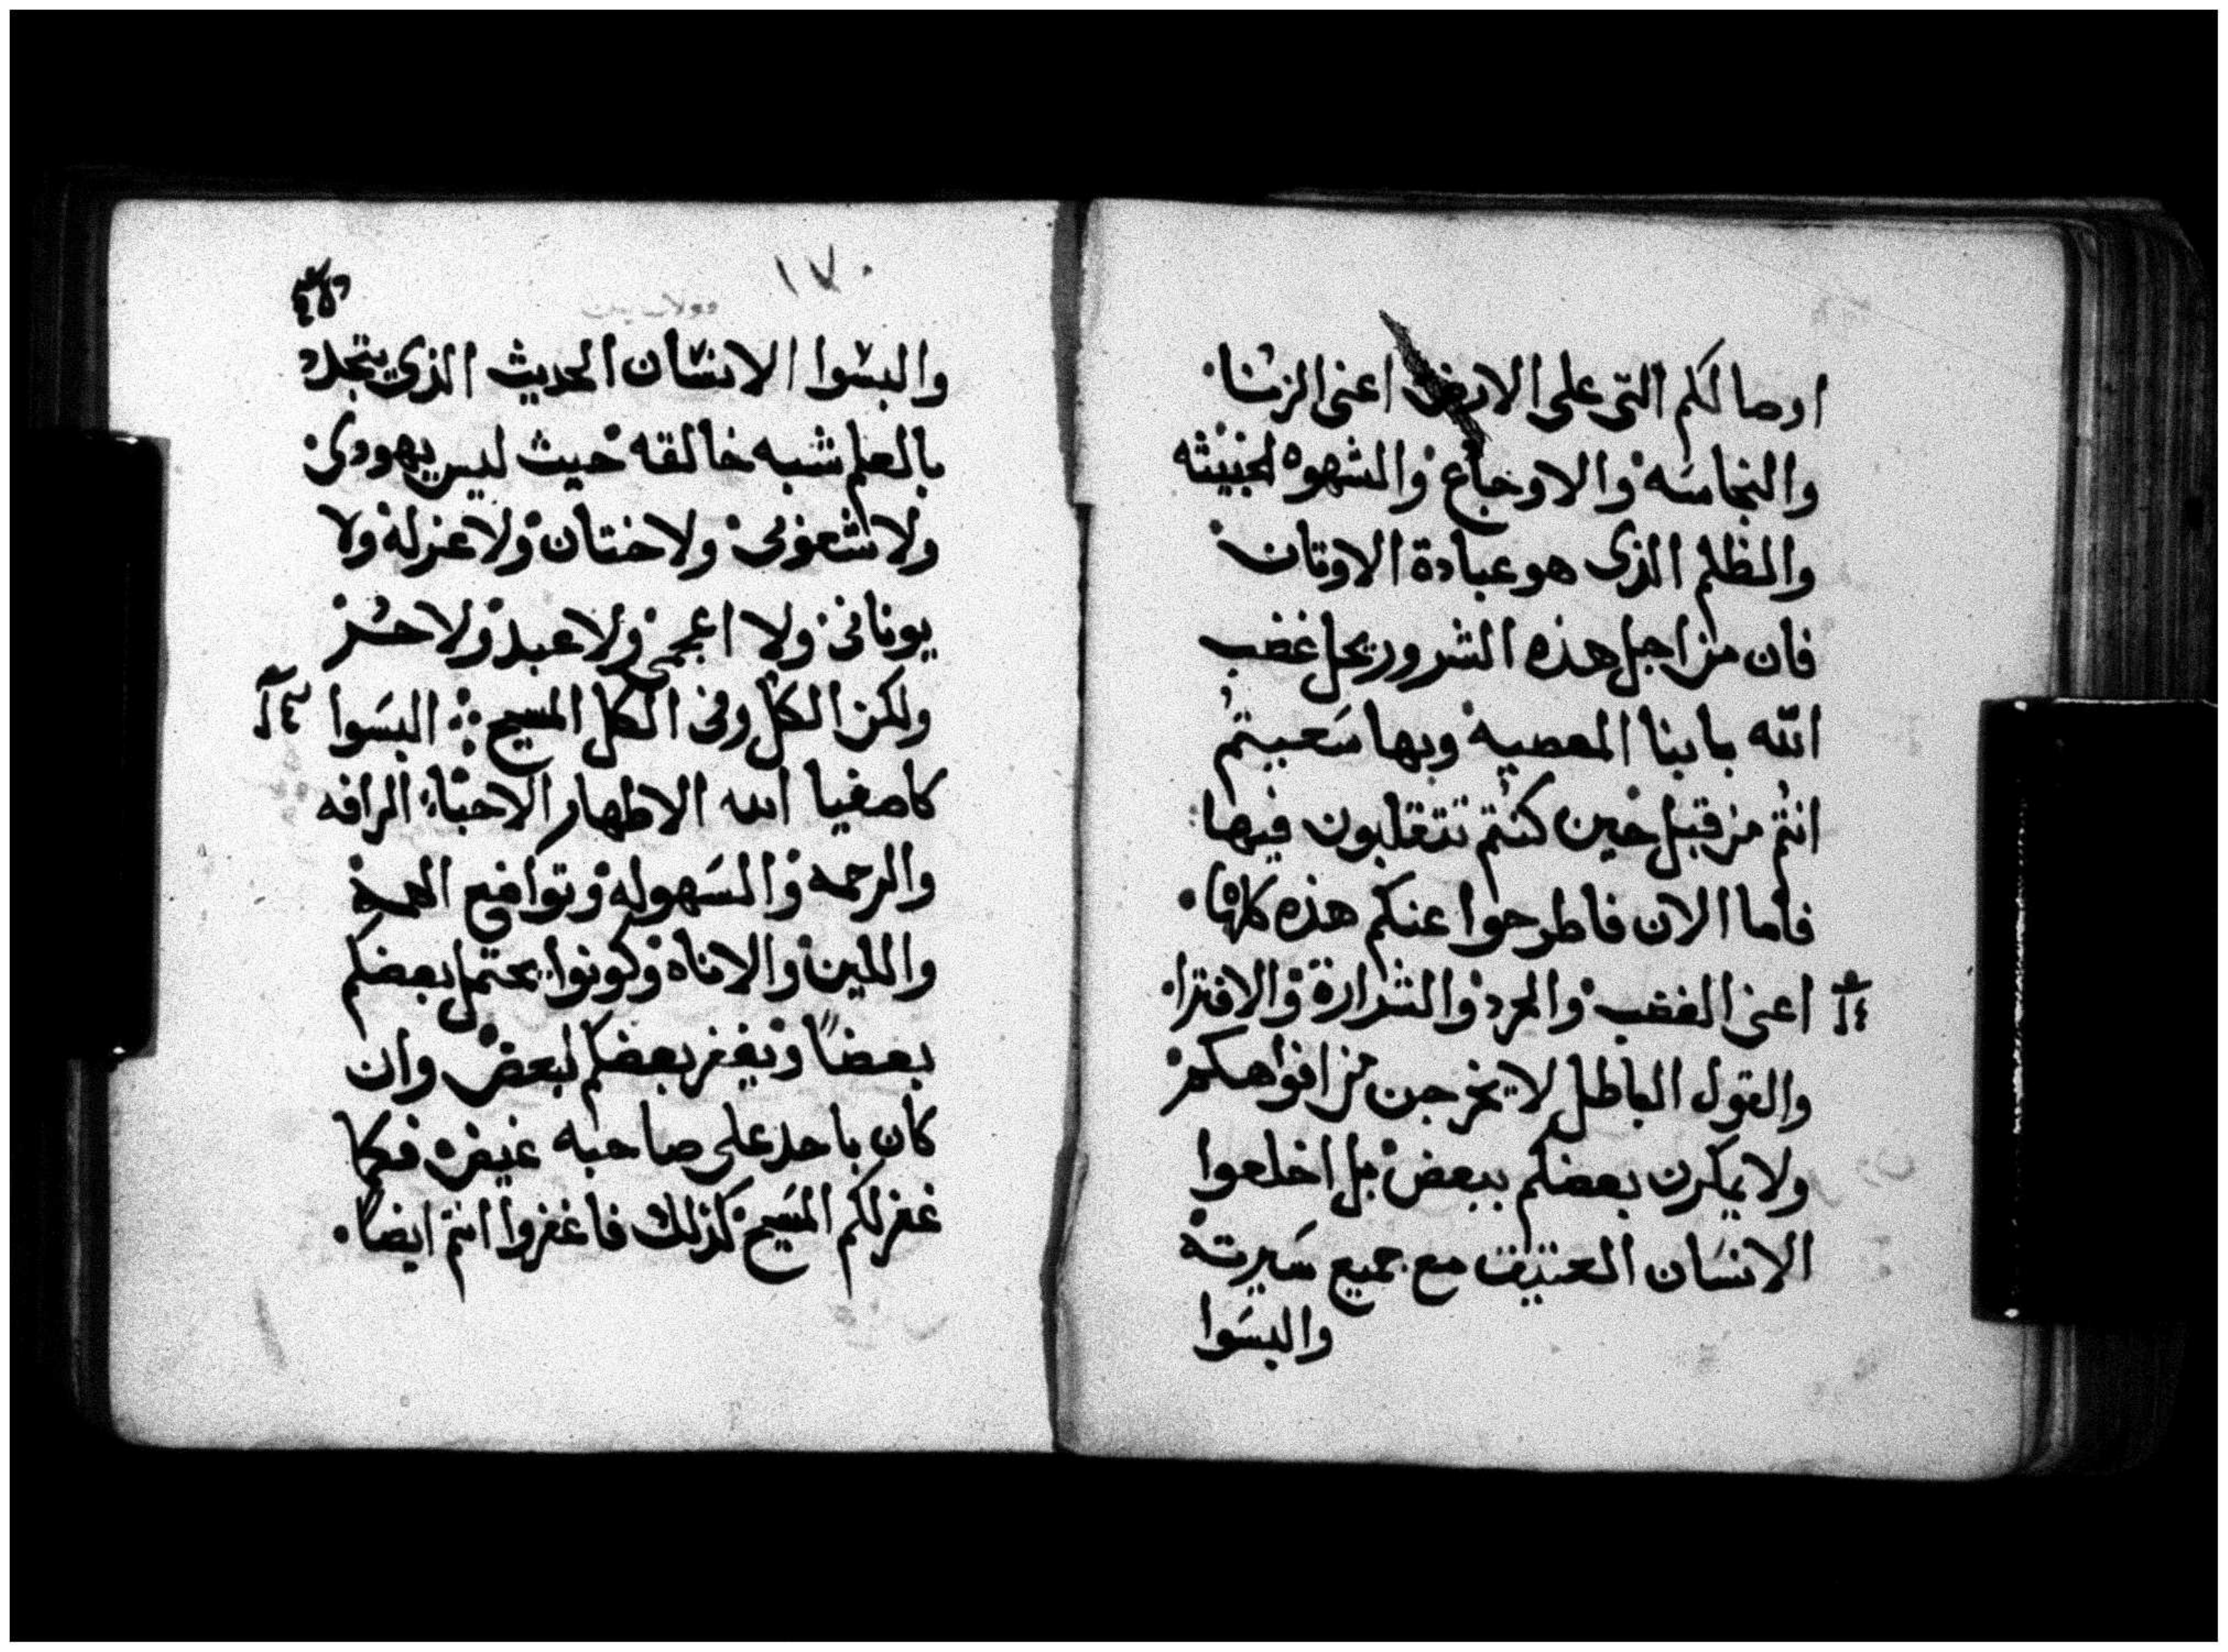 اوصالكم التى على الارض اعنى الزنا.
والنجاسه والاوجاع والشهوه الخبيثه
والظلم الذى هو عبادة الاوثان
فان من اجل هذه الشرور يحل غضب
الله بابنا المعصيه وبها سعيتم
انتم من قبل حين كنتم تتقلبون فيها
فاما الان فاطرحوا عنكم هذه كلها.
اعنى الغضب والحرد والشرارة والافترا.
والقول الباطل لا يخرجن من افواهكم
ولا يمكرن بعضكم ببعض بل اخلعوا
الانسان العتيق مع جميع سيرته
والبسوا
١٧٠
والبسوا الانسان الحديث الذى يتجدد
بالعلم شبه خالقه حيث ليس يهودى
ولا شعوبى ولا ختان ولا غزله ولا
يونانى ولا اعجمى ولا عبد ولا حر
ولكن الكل وفى الكل المسيح ⁘ البسوا
كاصفيا الله الاطهار الاحبا الرافه
والرحمه والسهوله وتواضع الهمه
واللين والاناه وكونوا يحتمل بعضكم
بعضاً ويغفر بعضكم لبعض وان
كان باحد على صاحبه غيض فكما
غفر لكم المسيح كذلك فاغفروا انتم ايضاً.